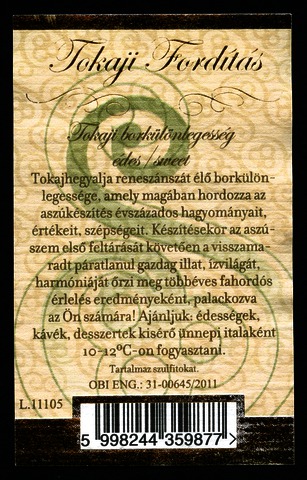 Tokaji Fordítás
Tokaji borkülönlegesség
édes / sweet
Tokajhegyalja reneszánszát élő borkülön-
legessége, amely magában hordozza az
aszúkészítés évszázados hagyományait,
értékeit, szépségeit. Készítésekor az aszú-
szem első feltárását követően a visszama-
radt páratlanul gazdag illat, ízvilágát,
harmóniáját őrzi meg többéves fahordós
érlelés eredményeként, palackozva
az Ön számára! Ajánljuk: édességek,
kávék, desszertek kisérő ünnepi italaként
10-12°C-on fogyasztani.
Tartalmaz szulfitokat.
OBI ENG.: 31-00645/2011
L.11105
5 998244 359877 >